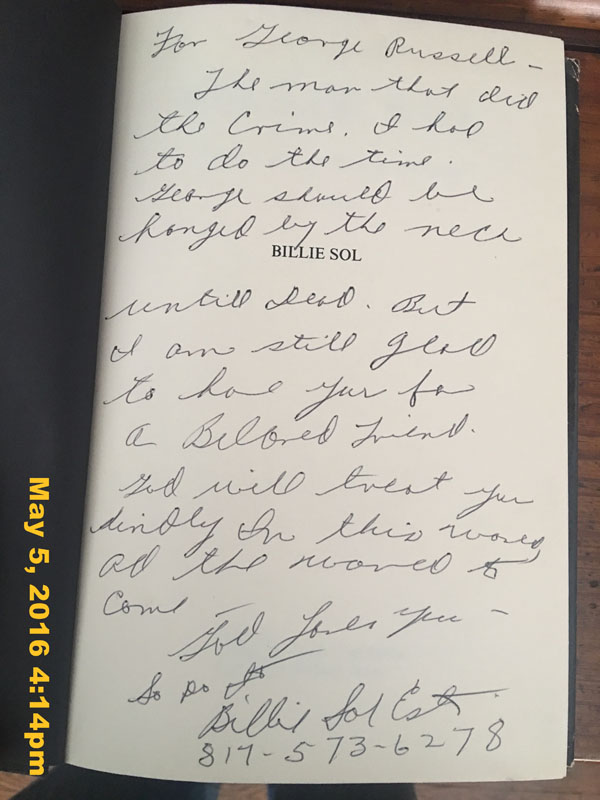 For George Russell -
The man that did
the Crime. I had
to do the time.
George should be
hanged by the neck
BILLIE SOL
untill Dead. But
I am still glad
to have you for
a Beloved Friend.
God will treat you
kindly In this world
ad the world to
Come -
God Loves you -
So Do I
Billie Sol Estes
817-573-6278
May 5, 2016 4:14pm